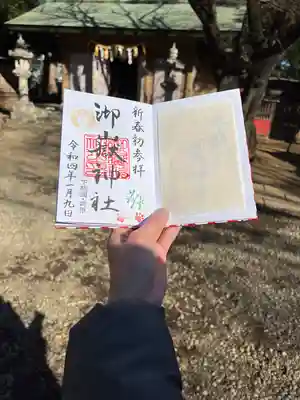 新春初参拝
御嶽神社
令和四年一月九日